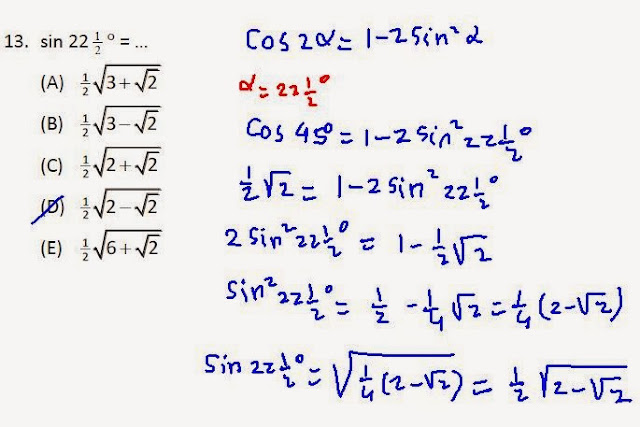 13. sin 22 ½ ° = ...
(A) ½√(3+√2)
(B) ½√(3−√2)
(C) ½√(2+√2)
(D) ½√(2−√2)
(E) ½√(6+√2)
Cos 2α = 1-2 Sin² α
α = 22½°
Cos 45° = 1-2 Sin² 22½°
½√2 = 1-2 Sin² 22½°
2 Sin² 22½° = 1-½√2
Sin² 22½° = ½ - ¼√2 = ¼(2-√2)
Sin 22½° = √(¼(2-√2)) = ½√(2-√2)